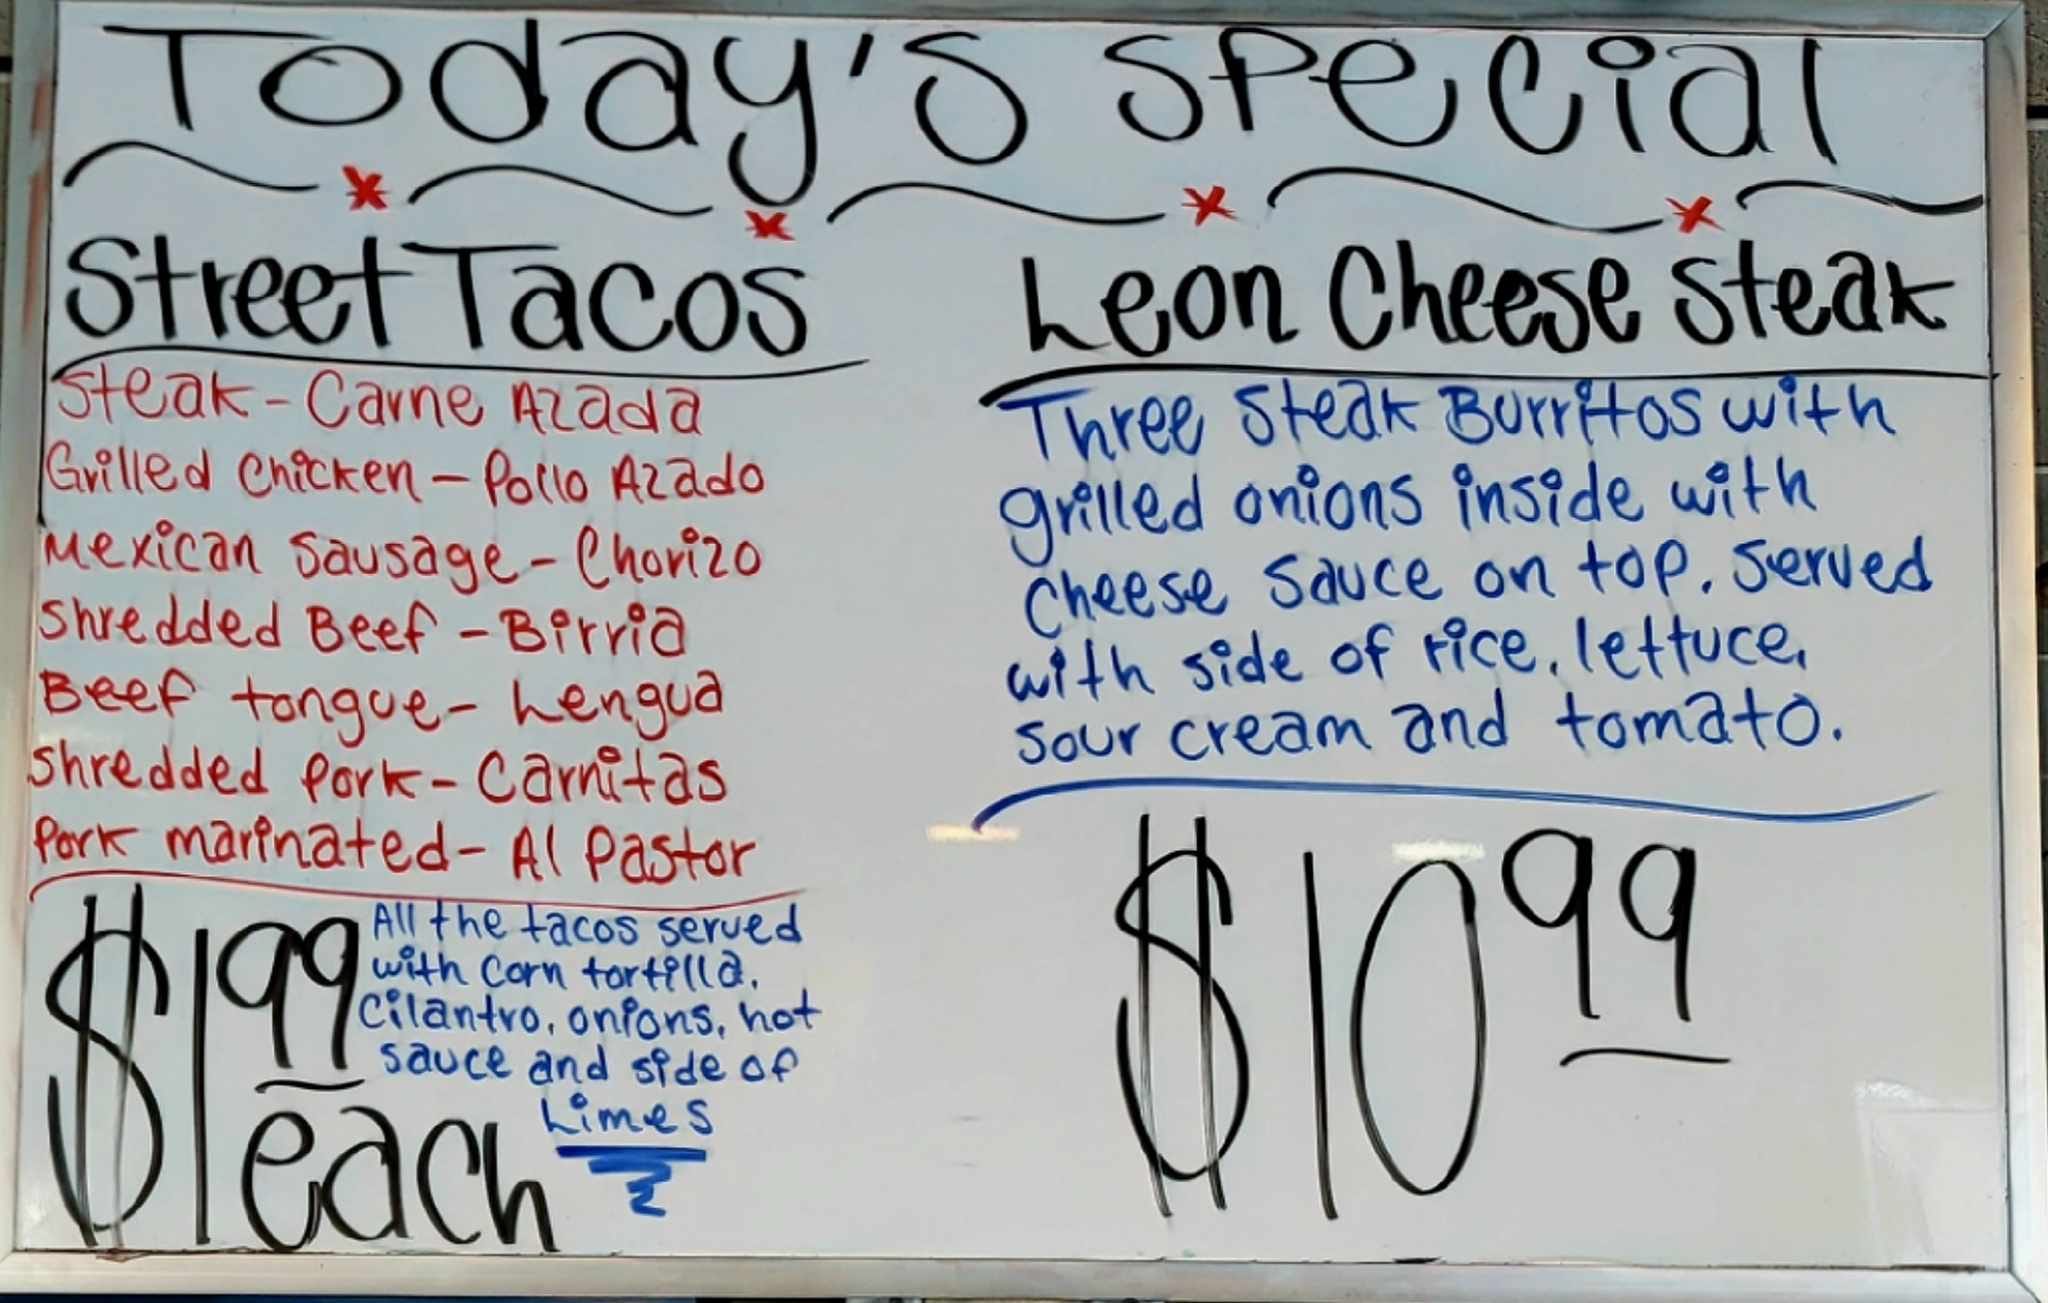 Today's Special
Street Tacos
Steak - Carne Azada
Grilled Chicken - Pollo Azado
Mexican Sausage - Chorizo
Shredded Beef - Birria
Beef tongue - Lengua
Shredded Pork - Carnitas
Pork marinated - Al Pastor
$1.99
each
All the tacos served
with corn tortilla,
Cilantro, onions, hot
sauce and side of
Limes
Leon Cheese Steak
Three Steak Burritos with
grilled onions inside with
cheese sauce on top. Served
with side of rice, lettuce,
sour cream and tomato.
$10 99